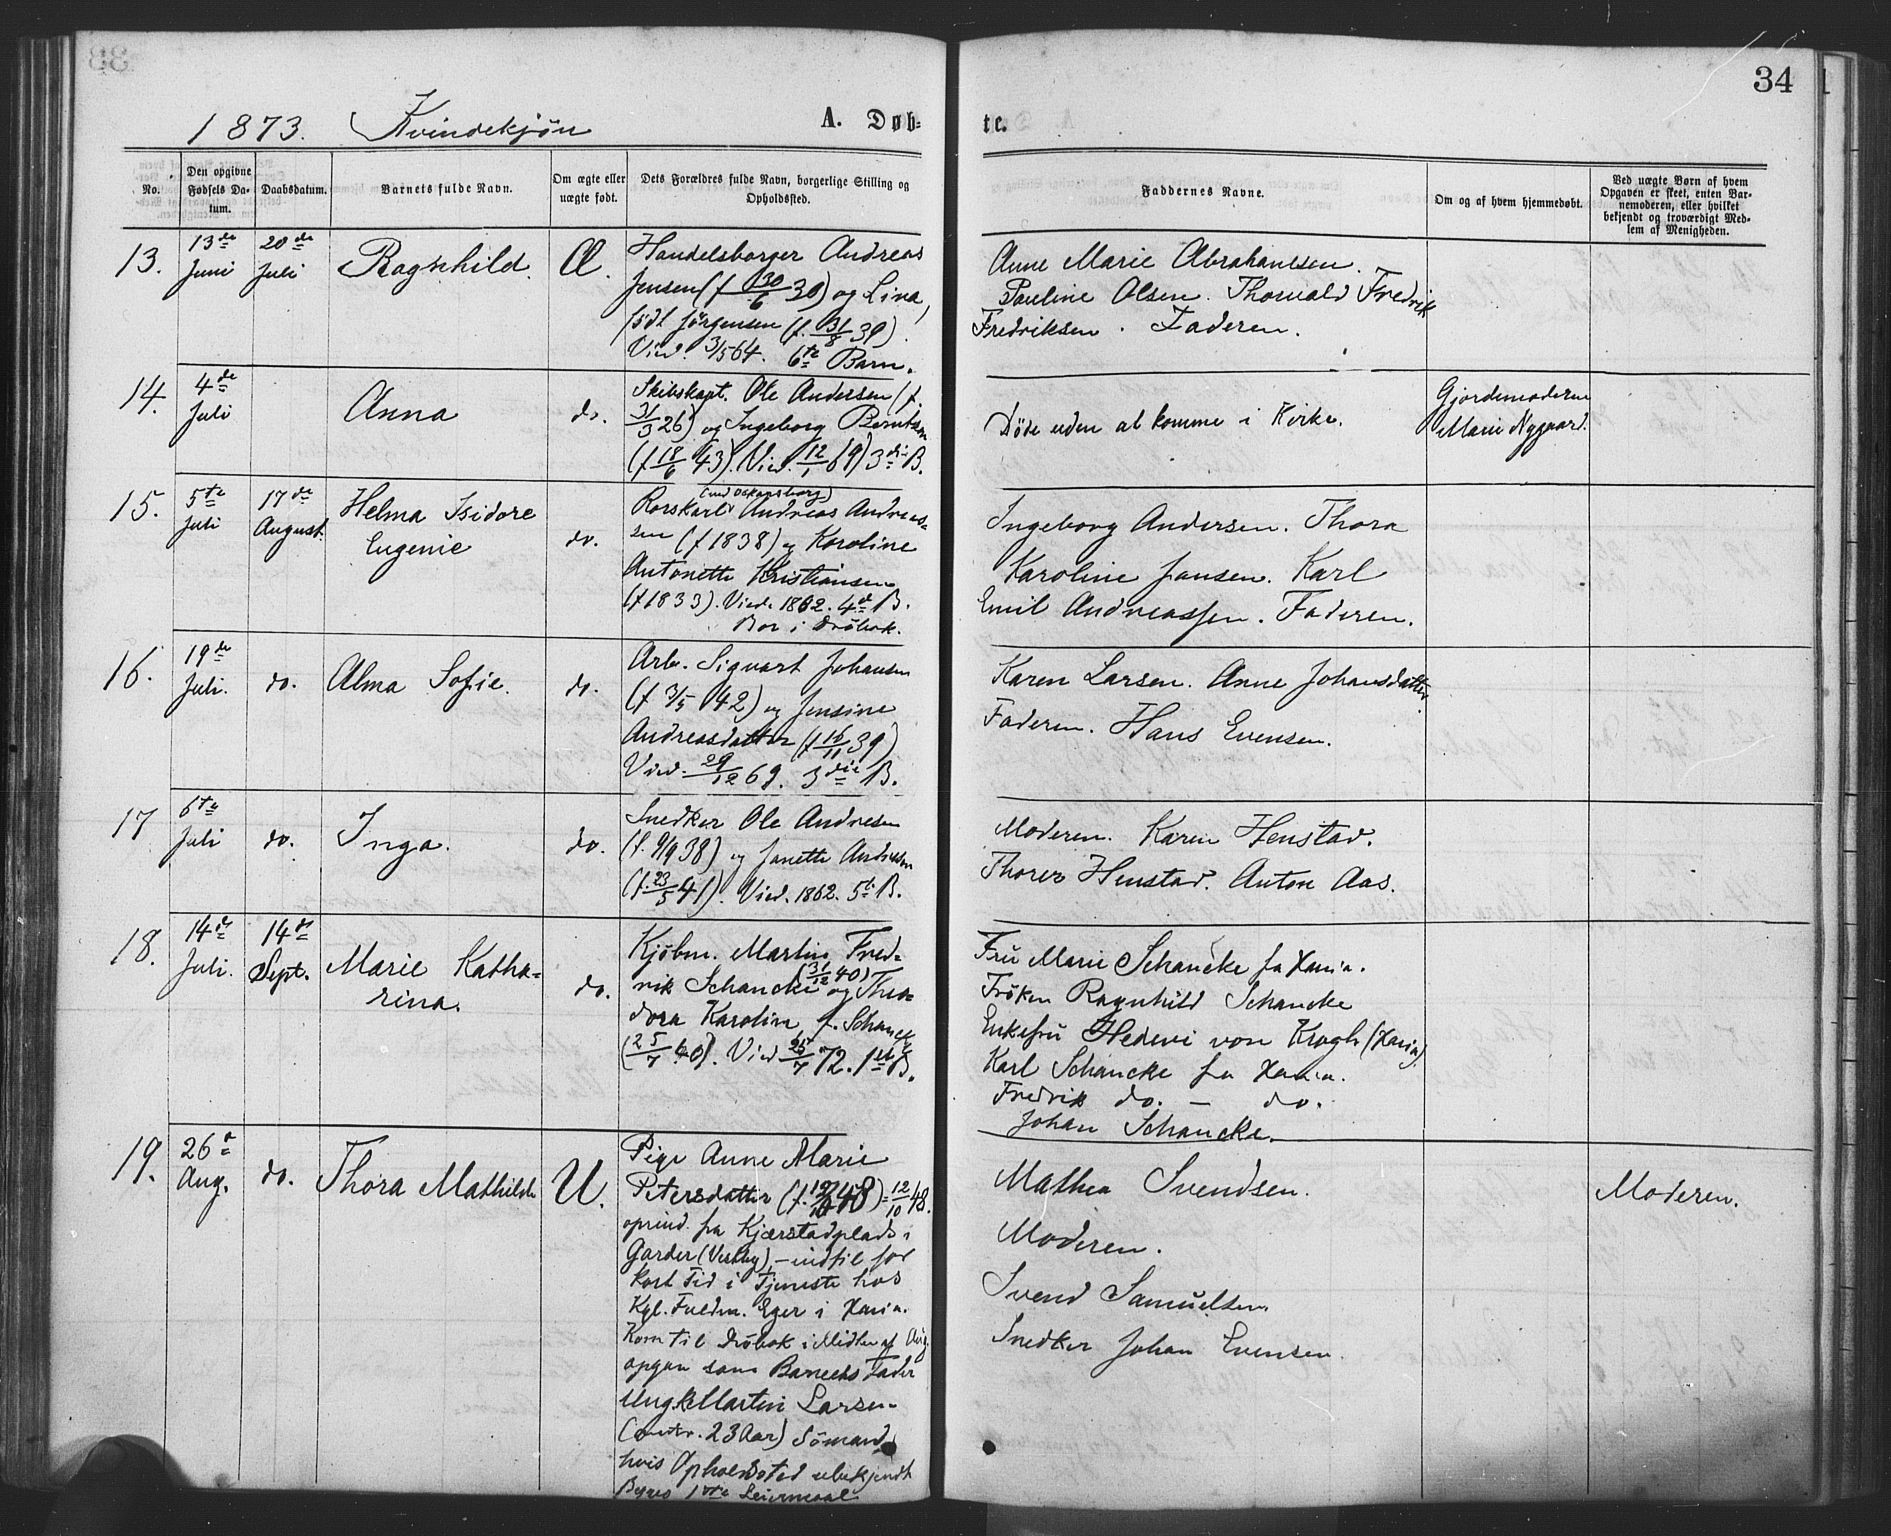 34
1873. Kvindekjøn
A. Døb-
te.
No.
Den opgivne
Fødsels Da-
tum.
Daabsdatum.
Barnets fulde Navn.
Om ægte eller
uægte født.
Dets Forældres fulde Navn, borgerlige Stilling og
Opholdssted.
Faddernes Navne.
Om og af hvem hjemmedøbt.
Ved uægte Børn af hvem
Opgaven er skeet, enten Bar-
nemoderen, eller hvilket
bekjendt og troværdigt Med-
lem af Menigheden.
13.
13de
Juni
20de
Juli
Ragnhild.
Æ.
Handelsborger Andreas
Jensen (f 30/6 30) og Lina,
født Jørgensen (f. 31/8 39).
Vied. 3/5 64. 6te Barn.
Anne Marie Abrahamsen.
Pauline Olsen. Thorvald Fredrik
Fredriksen. Faderen.
14.
4de
Juli
Anna
do.
Skibskapt. Ole Andersen (f.
31/3 26) og Ingeborg Berntsen
(f 18/6 43). Vied. 12/1 69) 3die B.
Døde uden at komme i Kirke.
Gjordemoderen
Marie Nygaard.
15.
5te
Juli
17de
August.
Helma Isidore
Eugenie
do.
(ved Oskarsborg)
Rorskarl Andreas Andreas-
sen (f 1838) og Karoline
Antonette Kristiansen
(f 1833). Vied. 1862. 4de B.
Bor i Drøbak.
Ingeborg Andersen. Thora
Karoline Jansen. Karl
Emil Andreassen. Faderen.
16.
19de
Juli.
do.
Alma Sofie.
do.
Arb. Sigvart Johansen
(f 3/5 42) og Jensine
Andreasdatter (f 16/11 39)
Vied. 29/12 69. 3die B.
Karen Larsen. Anne Johansdatter
Faderen. Hans Evensen.
17
6te
Juli
do.
Inga.
do.
Snedker Ole Andresen
(f. 9/9 38) og Janette Andresen
(f. 23/5 41). Vied. 1862. 5te B.
Moderen. Karen Henstad.
Thorer Henstad. Anton Aas.
18.
14de
Juli.
14de
Sept.
Marie Katha-
rina.
do.
Kjøbm. Martin Fred-
rik Schancke (31/12 40) og Theo-
dora Karolin, f. Schancke
(25/7 40). Vied 25/7 72. 1ste B.
Fru Marie Schancke fra Xania.
Frøken Ragnhild Schancke
Enkefru Hedevi von Krogh (Xania)
Karl Schancke fra Xania.
Fredrik do. — do.
Johan Schancke.
19.
26de
Aug.
do.
Thora Mathilde
U.
Pige Anne Marie
Petersdatter (f. 12/10 48) = 12/10 48.
oprind. fra Kjærstadplads i
Garder (Vestby), – indtil for
kort Tid i Tjeneste hos
Kgl. Fuldm. Eger i Xania.
Kom til Drøbak i Midten af Aug.
opgav som Barnets Fader
Ungk Martin Larsen
(omtr. 23 Aar) Sømand,
hvis Opholdsted ubekjendt
Begges 1ste Leiermaal
Mathea Svendsen.
Moderen.
Svend Samuelsen.
Snedker Johan Evensen.
Moderen.